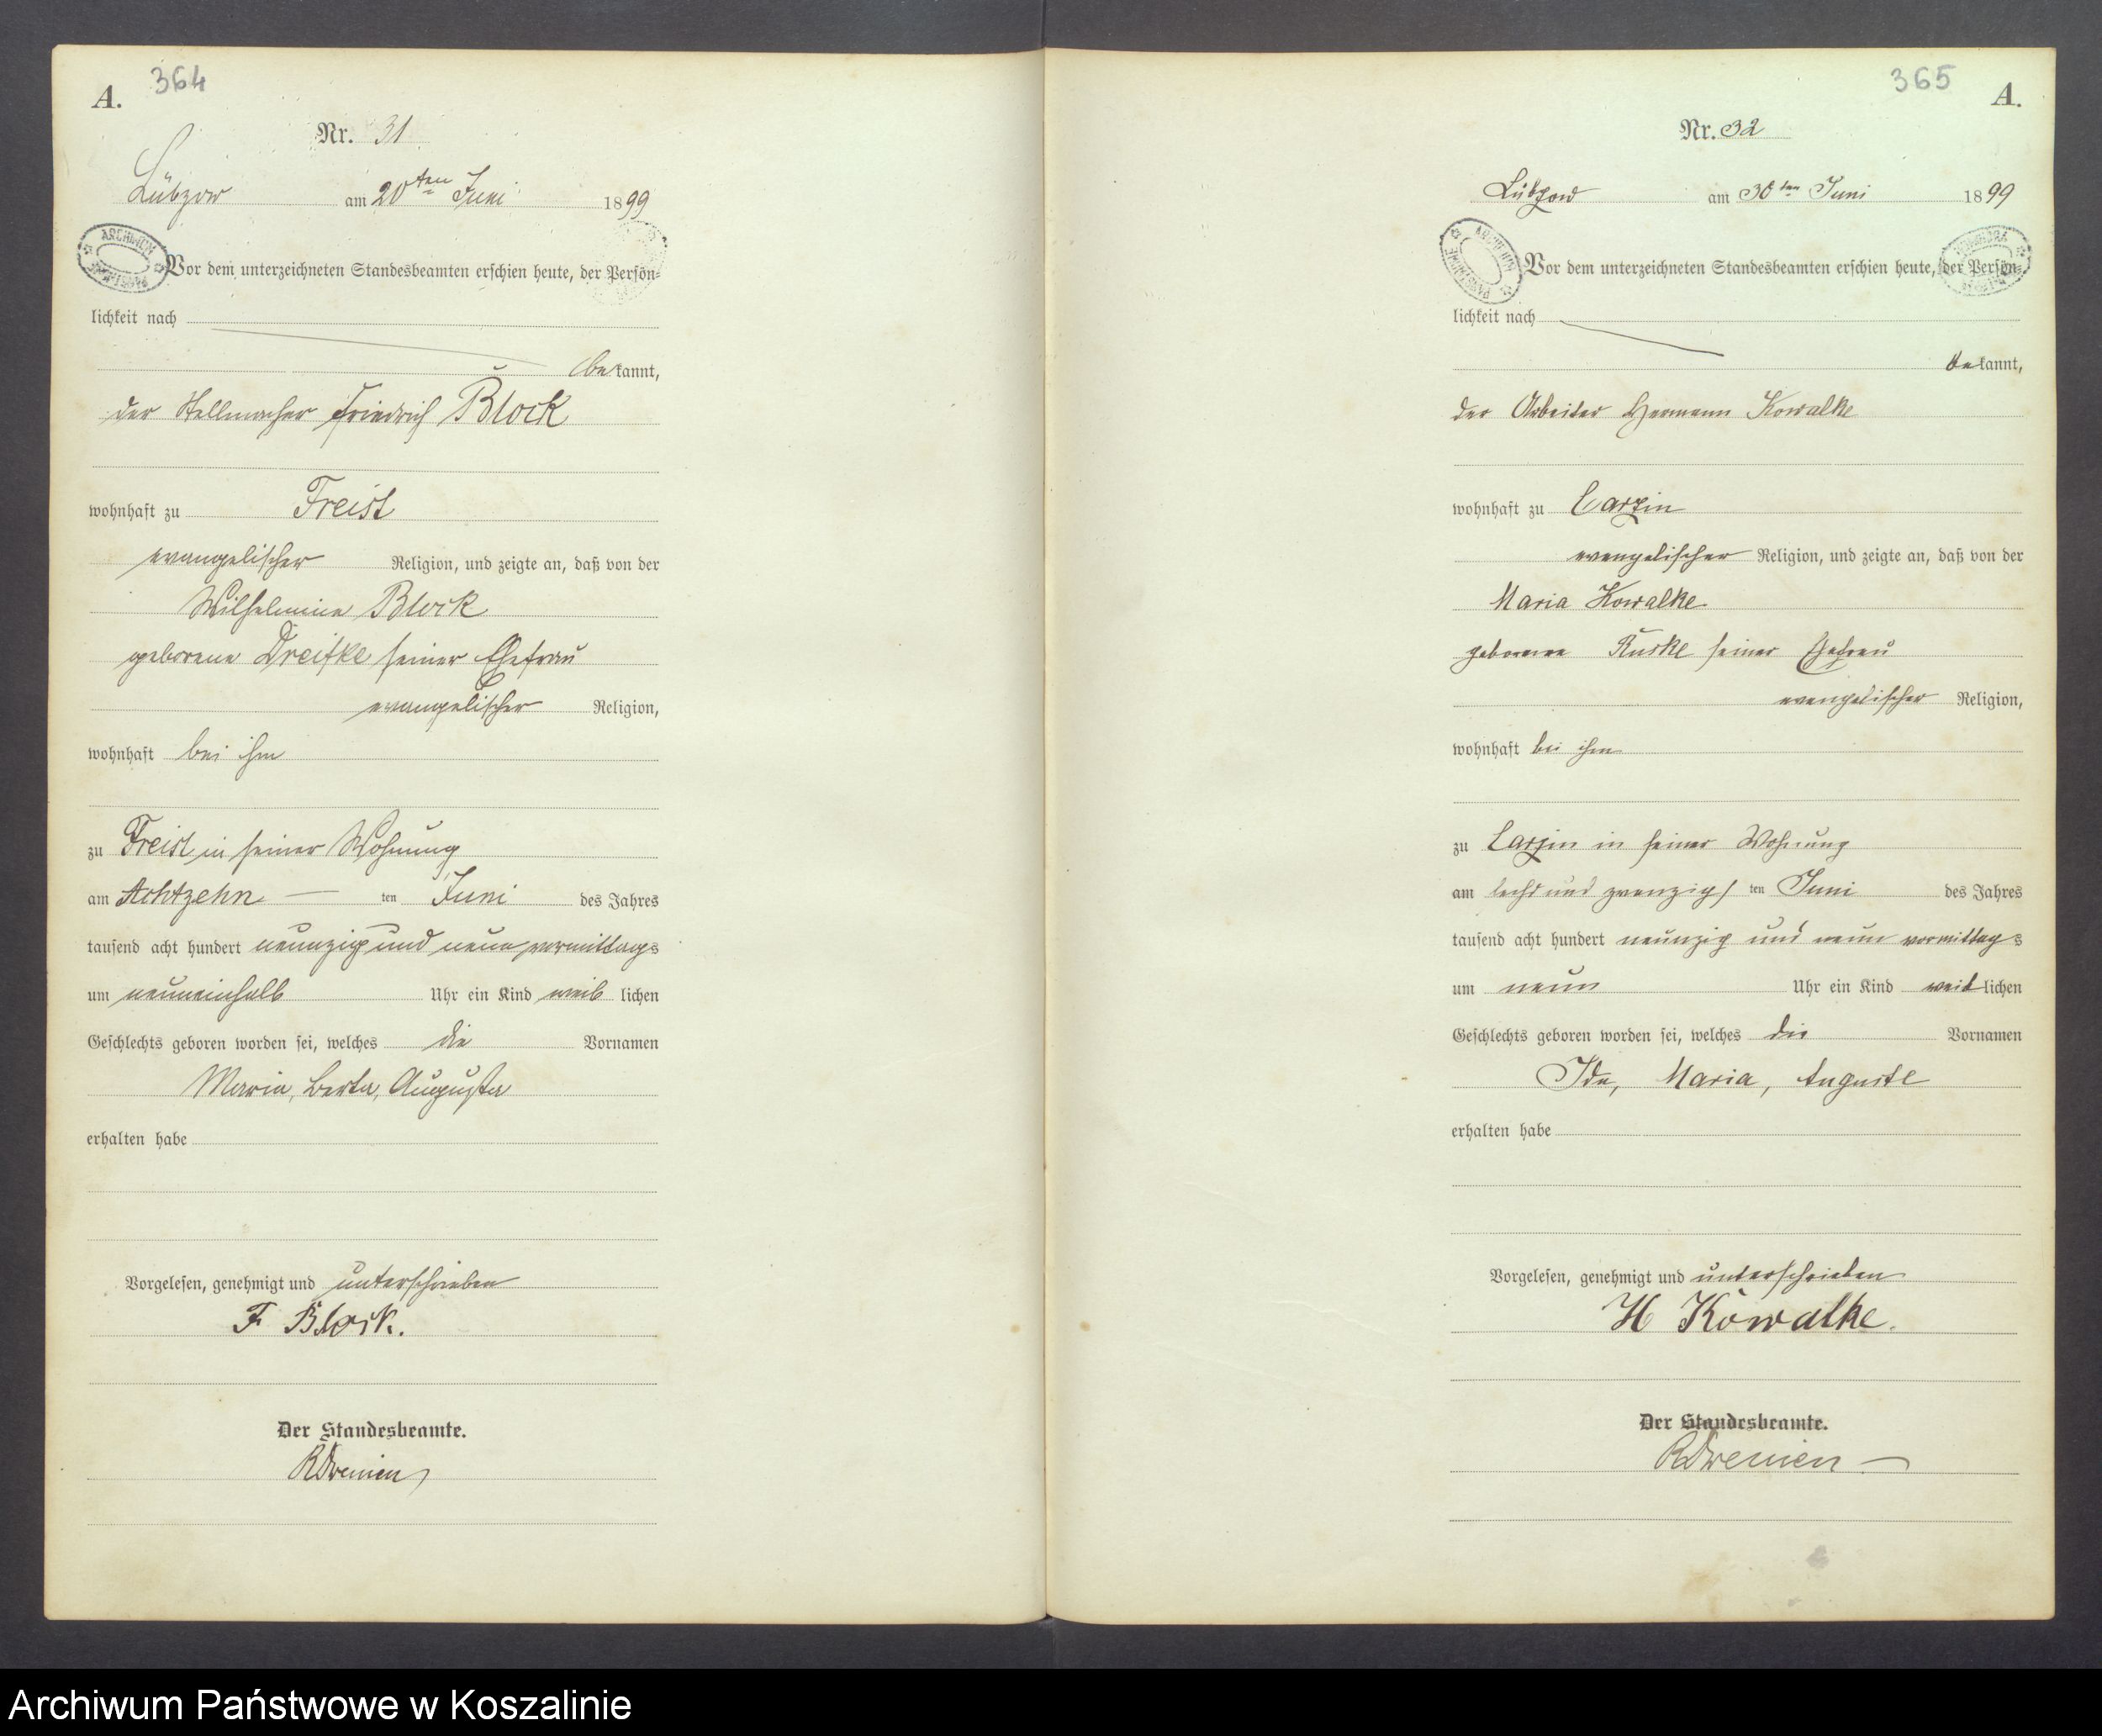 364
A.
Nr. 31
Lübzow am 20ten Juni 1899
ARCHIWUM
PAŃSTWOWE
Vor dem unterzeichneten Standesbeamten erschien heute, der Persön-
lichkeit nach
bekannt,
der Stellmacher Friedrich Block
wohnhaft zu Freist
evangelischer Religion, und zeigte an, daß von der
Wilhelmine Block
geborene Dreifke seiner Ehefrau
evangelischer Religion,
wohnhaft bei ihm
zu Freist in seiner Wohnung
am Achtzehn ten Juni des Jahres
tausend acht hundert neunzig und neun vormittags
um neuneinhalb Uhr ein Kind weiblichen
Geschlechts geboren worden sei, welches die Vornamen
Maria, Berta, Augusta
erhalten habe
Vorgelesen, genehmigt und unterschrieben
F Block.
Der Standesbeamte.
365
A.
Nr. 32
Lübzow am 30ten Juni 1899
ARCHIWUM
PAŃSTWOWE
Vor dem unterzeichneten Standesbeamten erschien heute, der Persön-
lichkeit nach
bekannt,
der Arbeiter Hermann Kowalke
wohnhaft zu Carzin
evangelischer Religion, und zeigte an, daß von der
Maria Kowalke
geborene Kuske seiner Ehefrau
evangelischer Religion,
wohnhaft bei ihm
zu Carzin in seiner Wohnung
am sechs und zwanzigs ten Juni des Jahres
tausend acht hundert neunzig und neun vormittags
um neun Uhr ein Kind weiblichen
Geschlechts geboren worden sei, welches die Vornamen
Ida, Maria, Auguste
erhalten habe
Vorgelesen, genehmigt und unterschrieben
H Kowalke.
Der Standesbeamte.
Archiwum Państwowe w Koszalinie